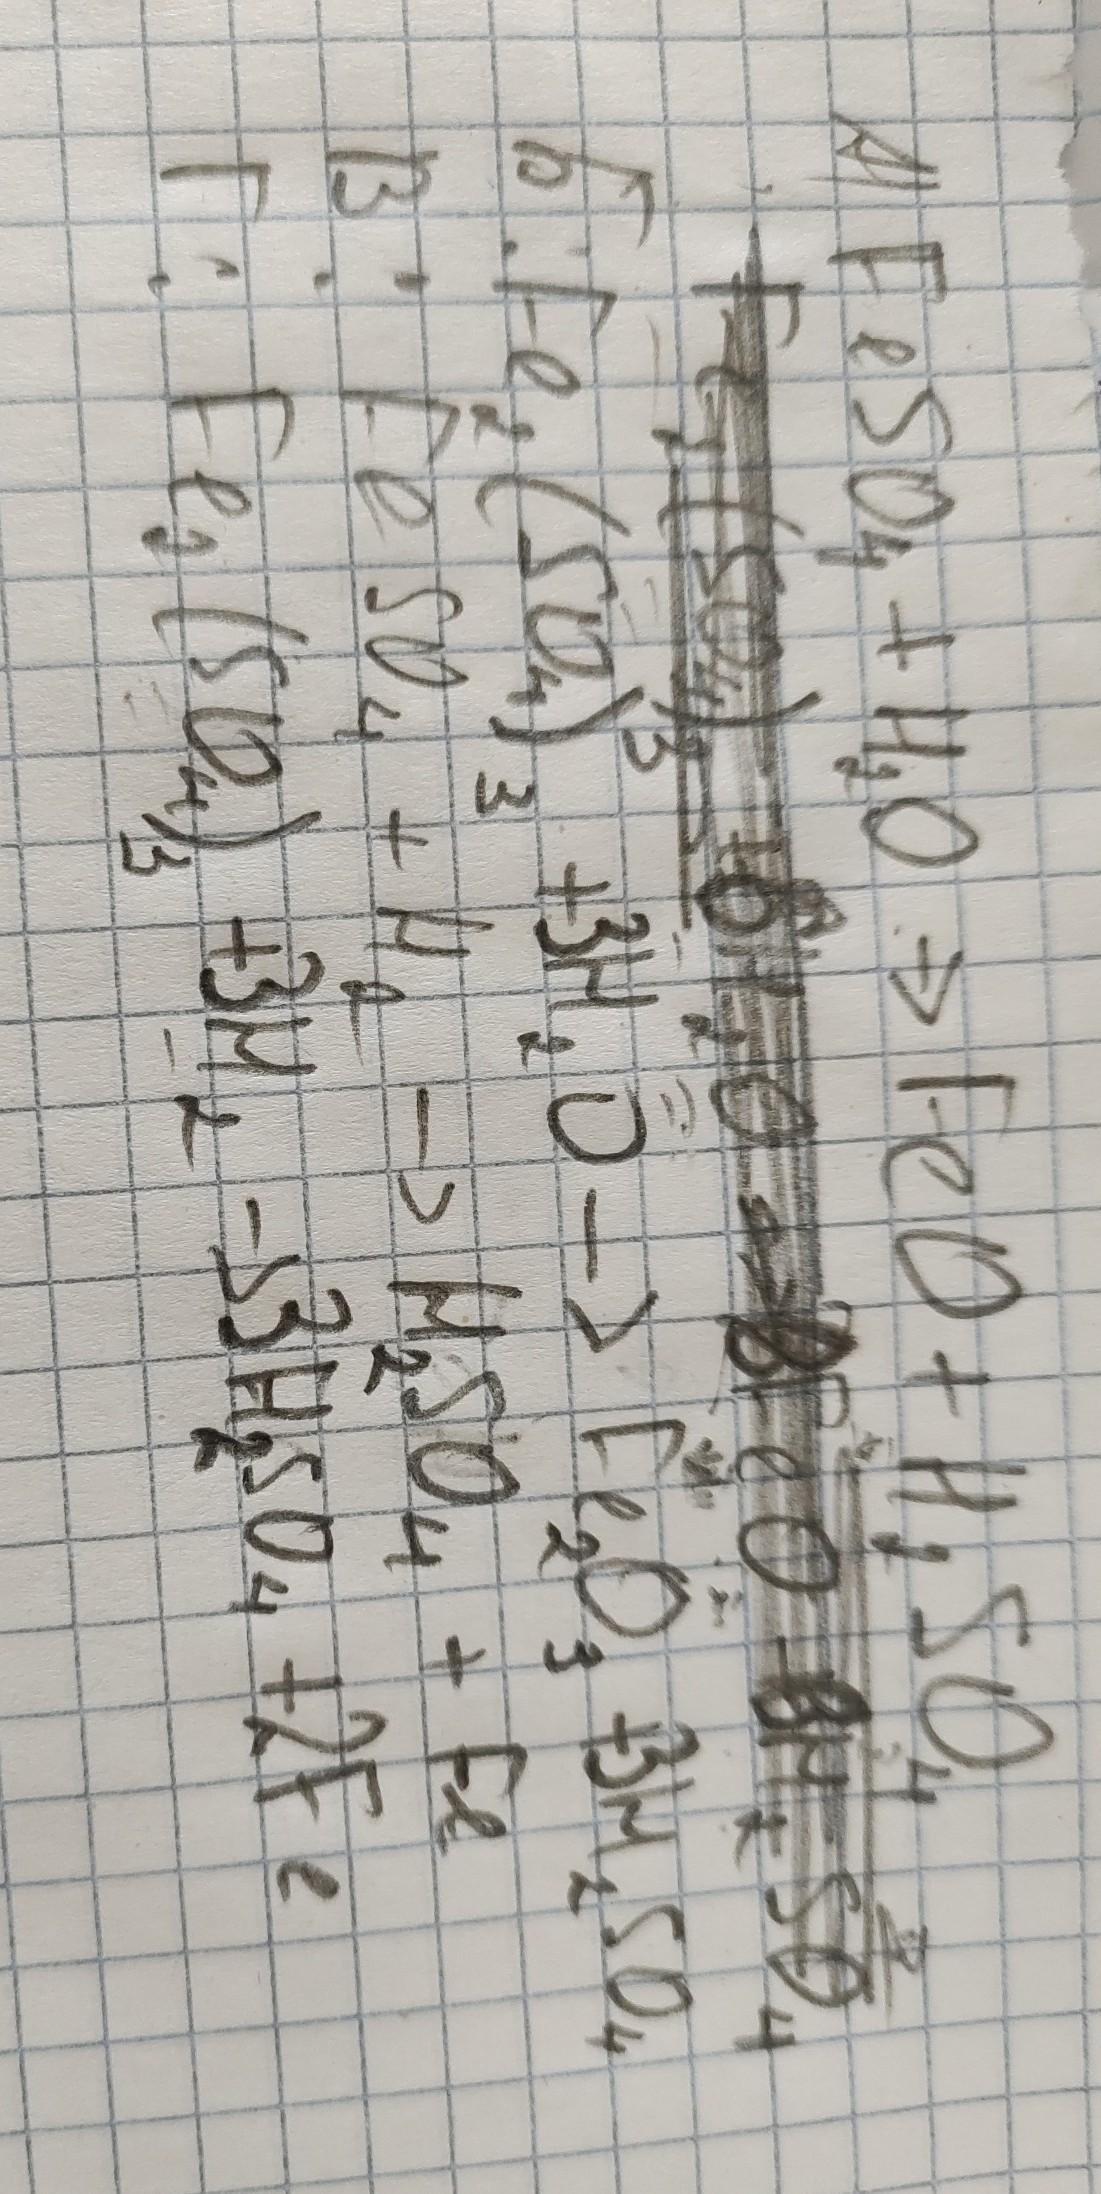 А) FeSO4 + H2O → FeO + H2SO4
Б: Fe2(SO4)3 + 3H2O → Fe2O3 + 3H2SO4
В: FeSO4 + H2 → H2SO4 + Fe
Г: Fe2(SO4)3 + 3H2 → 3H2SO4 + 2Fe